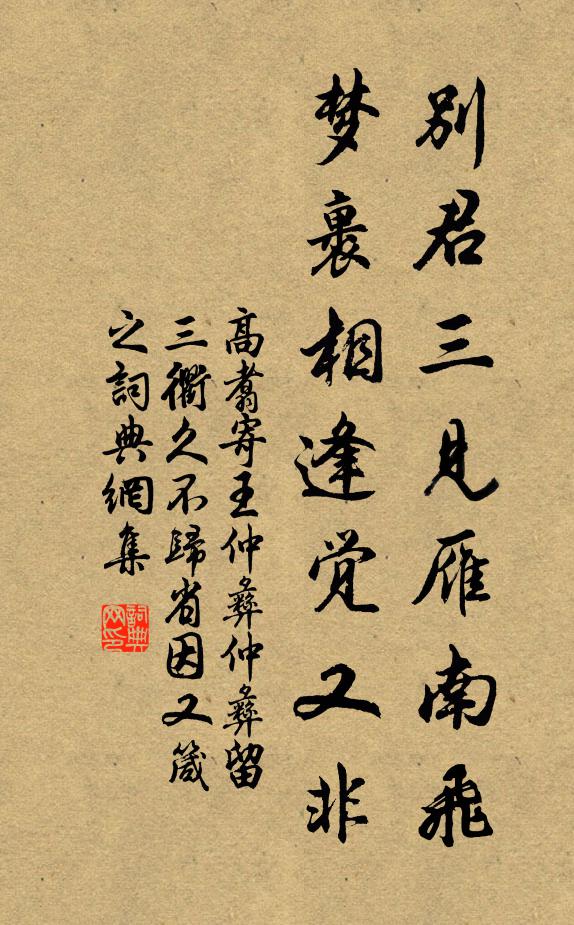 别君三見雁南飛
梦裏相逢覚又非
高翥寄王仲彝仲彝留
三衢久不歸省因又箴
之詞典網集
詞典网印